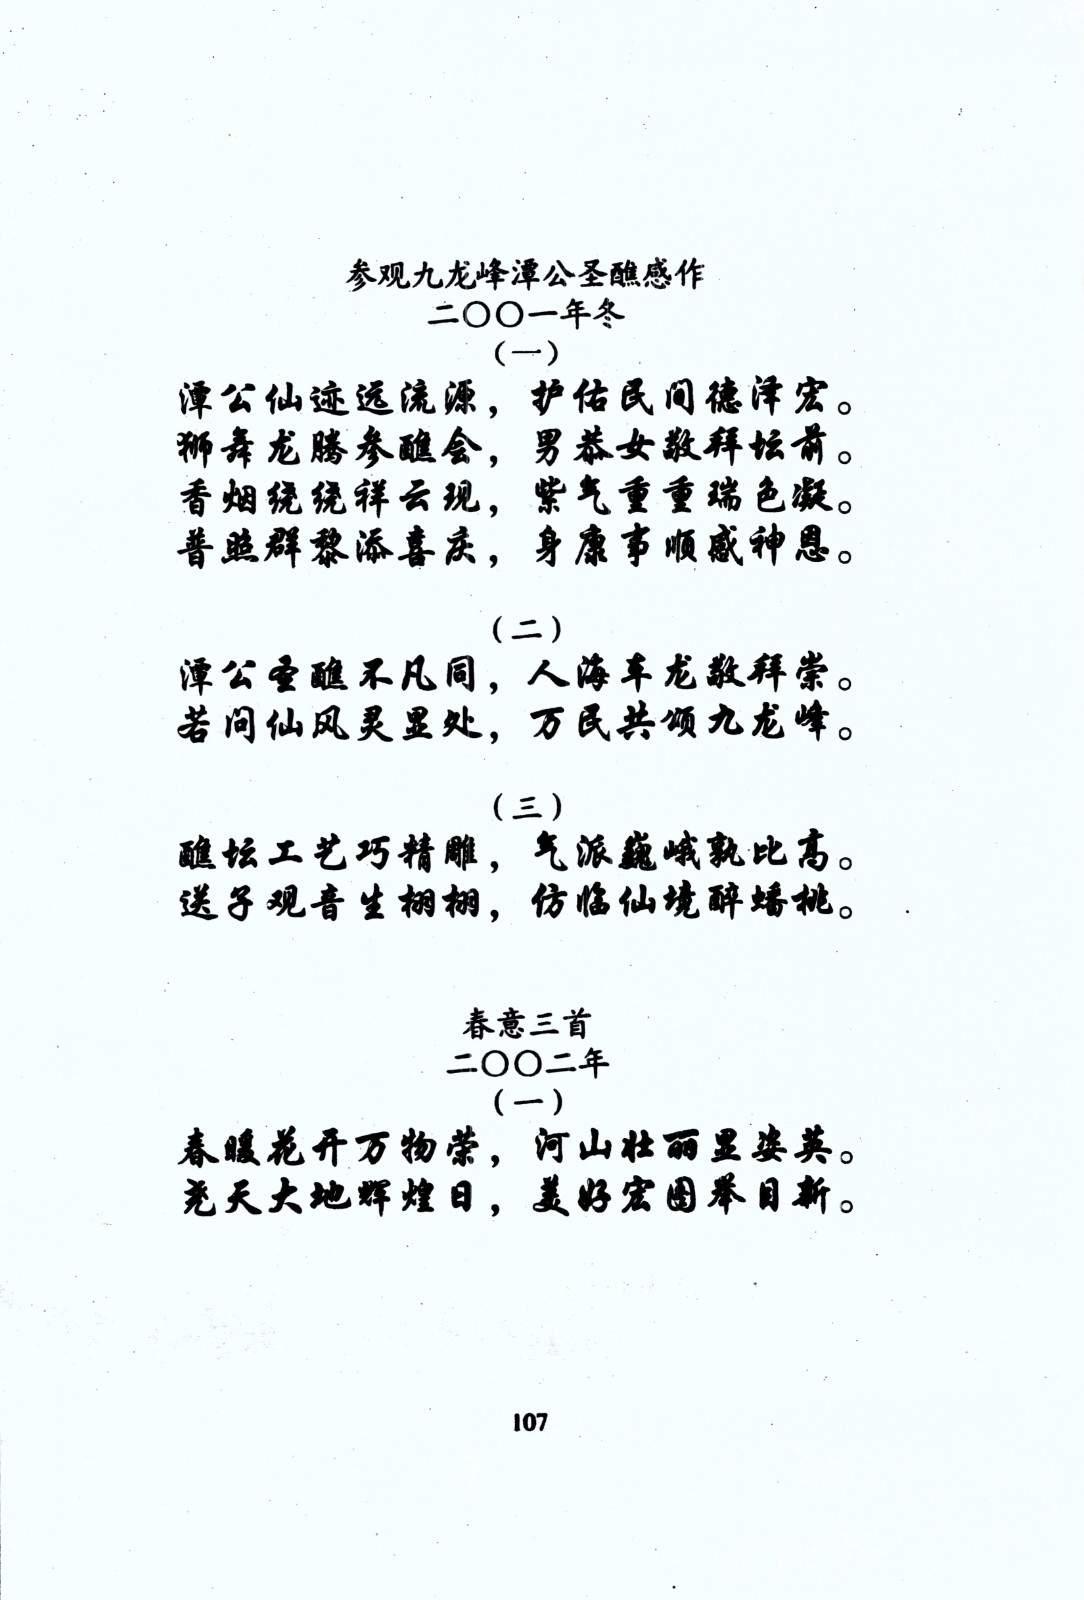 参观九龙峰潭公圣醮感作
二〇〇一年冬
（一）
潭公仙迹远流源，护佑民间德泽宏。
狮舞龙腾参醮会，男恭女敬拜坛前。
香烟绕绕祥云现，紫气重重瑞色凝。
普照群黎添喜庆，身康事顺感神恩。
（二）
潭公圣醮不凡同，人海车龙敬拜崇。
若问仙风灵显处，万民共颂九龙峰。
（三）
醮坛工艺巧精雕，气派巍峨孰比高。
送子观音生栩栩，仿临仙境醉蟠桃。
春意三首
二〇〇二年
（一）
春暖花开万物荣，河山壮丽显姿英。
尧天大地辉煌日，美好宏图举目新。
107